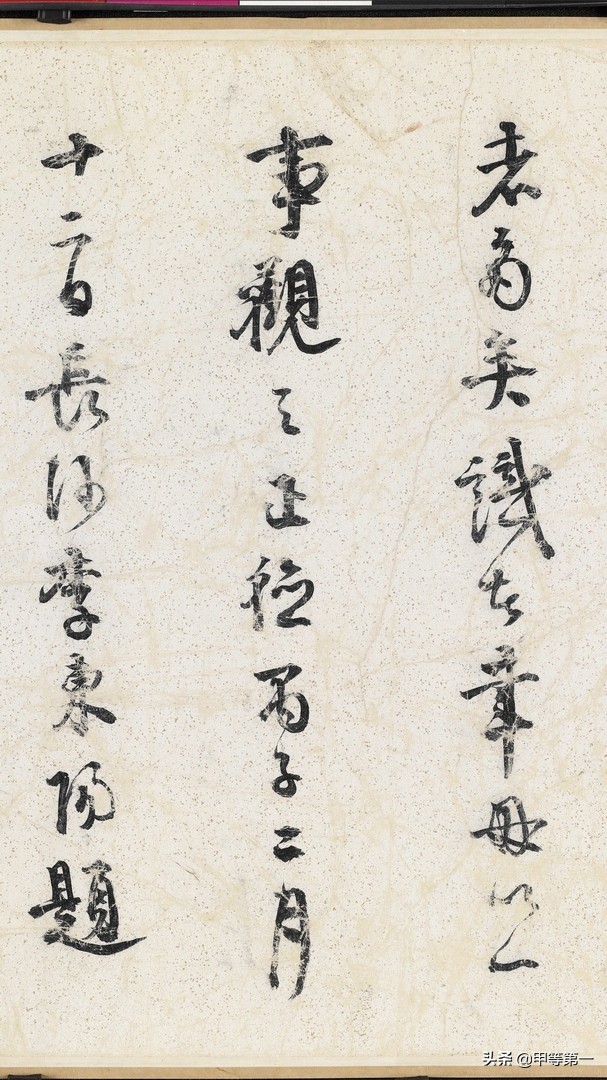 者矣識者幸毋以一
事觀之正德丙子二月
十二日長沙李東陽題
头条 @甲等第一